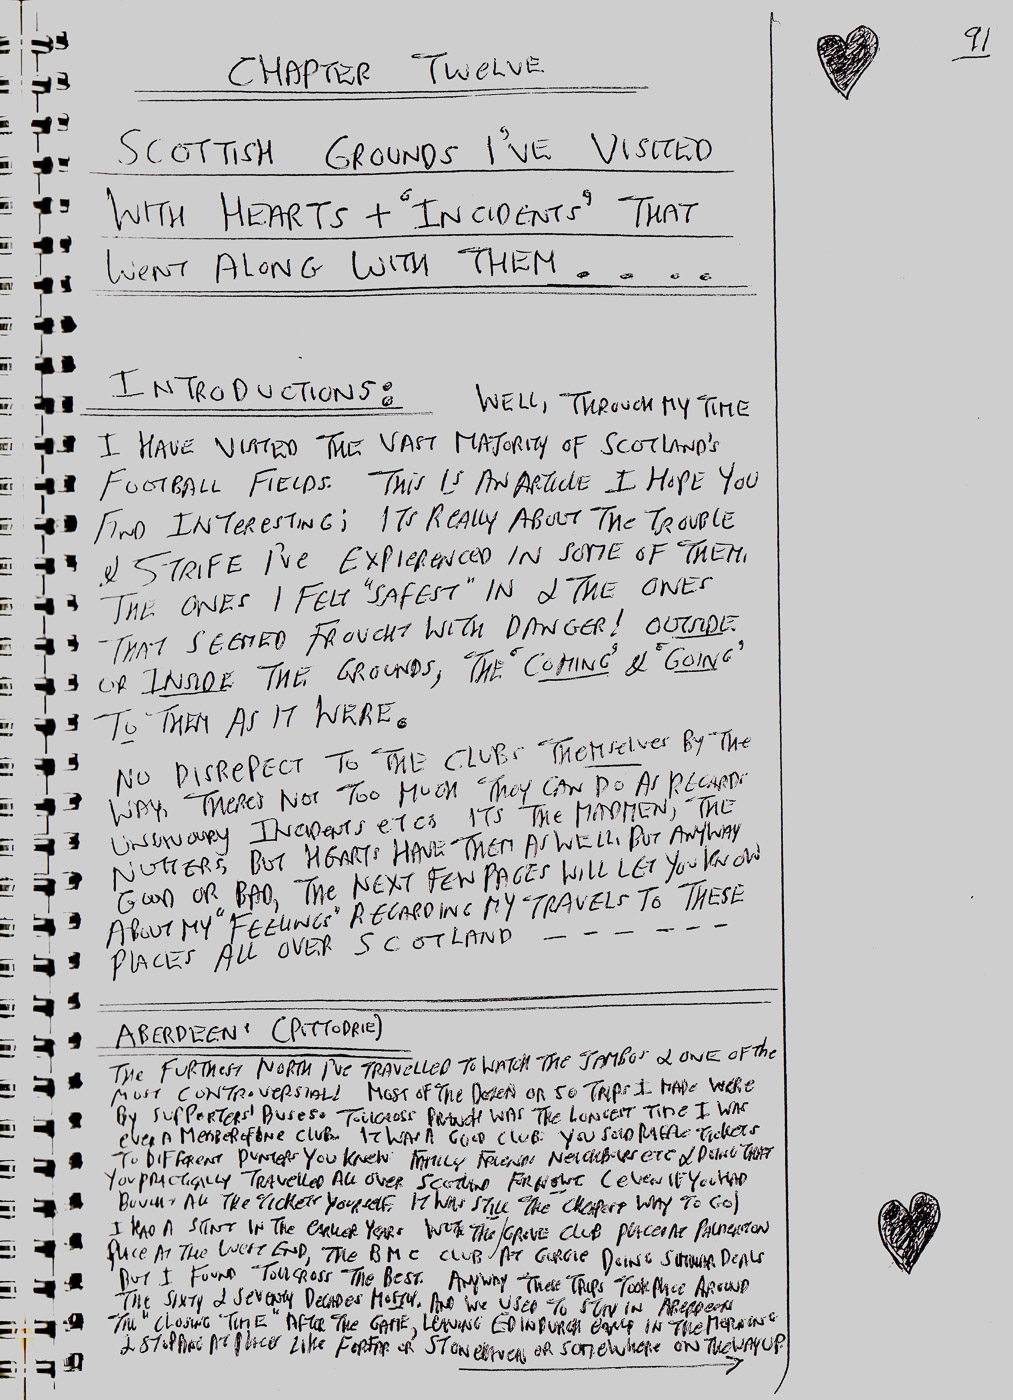 91
CHAPTER TWELVE
SCOTTISH GROUNDS I'VE VISITED
WITH HEARTS + "INCIDENTS" THAT
WENT ALONG WITH THEM . . . .
INTRODUCTIONS: WELL, THROUGH MY TIME
I HAVE VISITED THE VAST MAJORITY OF SCOTLAND'S
FOOTBALL FIELDS. THIS IS AN ARTICLE I HOPE YOU
FIND INTERESTING; ITS REALLY ABOUT THE TROUBLE
& STRIFE I'VE EXPIERENCED IN SOME OF THEM.
THE ONES I FELT "SAFEST" IN & THE ONES
THAT SEEMED FROUGHT WITH DANGER! OUTSIDE
OR INSIDE THE GROUNDS, THE "COMING" & "GOING"
TO THEM AS IT WERE.
NO DISREPECT TO THE CLUBS THEMSELVES BY THE
WAY, THERE'S NOT TOO MUCH THEY CAN DO AS REGARDS
UNSAVOURY INCIDENTS ETC; ITS THE MADMEN, THE
NUTTERS, BUT HEARTS HAVE THEM AS WELL. BUT ANYWAY
GOOD OR BAD, THE NEXT FEW PAGES WILL LET YOU KNOW
ABOUT MY "FEELINGS" REGARDING MY TRAVELS TO THESE
PLACES ALL OVER SCOTLAND — — — — — —
ABERDEEN: (PITTODRIE)
THE FURTHEST NORTH I'VE TRAVELLED TO WATCH THE JAMBOS & ONE OF THE
MOST CONTROVERSIAL! MOST OF THE DOZEN OR SO TRIPS I MADE WERE
BY SUPPORTERS' BUSES. TOLLCROSS BRANCH WAS THE LONGEST TIME I WAS
EVER A MEMBER OF ONE CLUB. IT WAS A GOOD CLUB. YOU SOLD RAFFLE TICKETS
TO DIFFERENT PUNTERS YOU KNEW FAMILY FRIENDS NEIGHBOURS ETC & DOING THAT
YOU PRACTICALLY TRAVELLED ALL OVER SCOTLAND FOR NOWT (EVEN IF YOU HAD
BOUGHT ALL THE TICKETS YOURSELF IT WAS STILL THE CHEAPEST WAY TO GO)
I HAD A STINT IN THE EARLIER YEARS WITH THE GROVE CLUB PLACE AT PALMERSTON
PLACE AT THE WEST END, THE B M C CLUB AT GORGIE DOING SIMILAR DEALS
BUT I FOUND TOLLCROSS THE BEST. ANYWAY THESE TRIPS TOOK PLACE AROUND
THE SIXTY & SEVENTY DECADES MOSTLY. AND WE USED TO STAY IN ABERDEEN
TILL "CLOSING TIME" AFTER THE GAME, LEAVING EDINBURGH EARLY IN THE MORNING
& STOPPING AT PLACES LIKE FORFAR OR STONEHAVEN OR SOMEWHERE ON THE WAY UP.